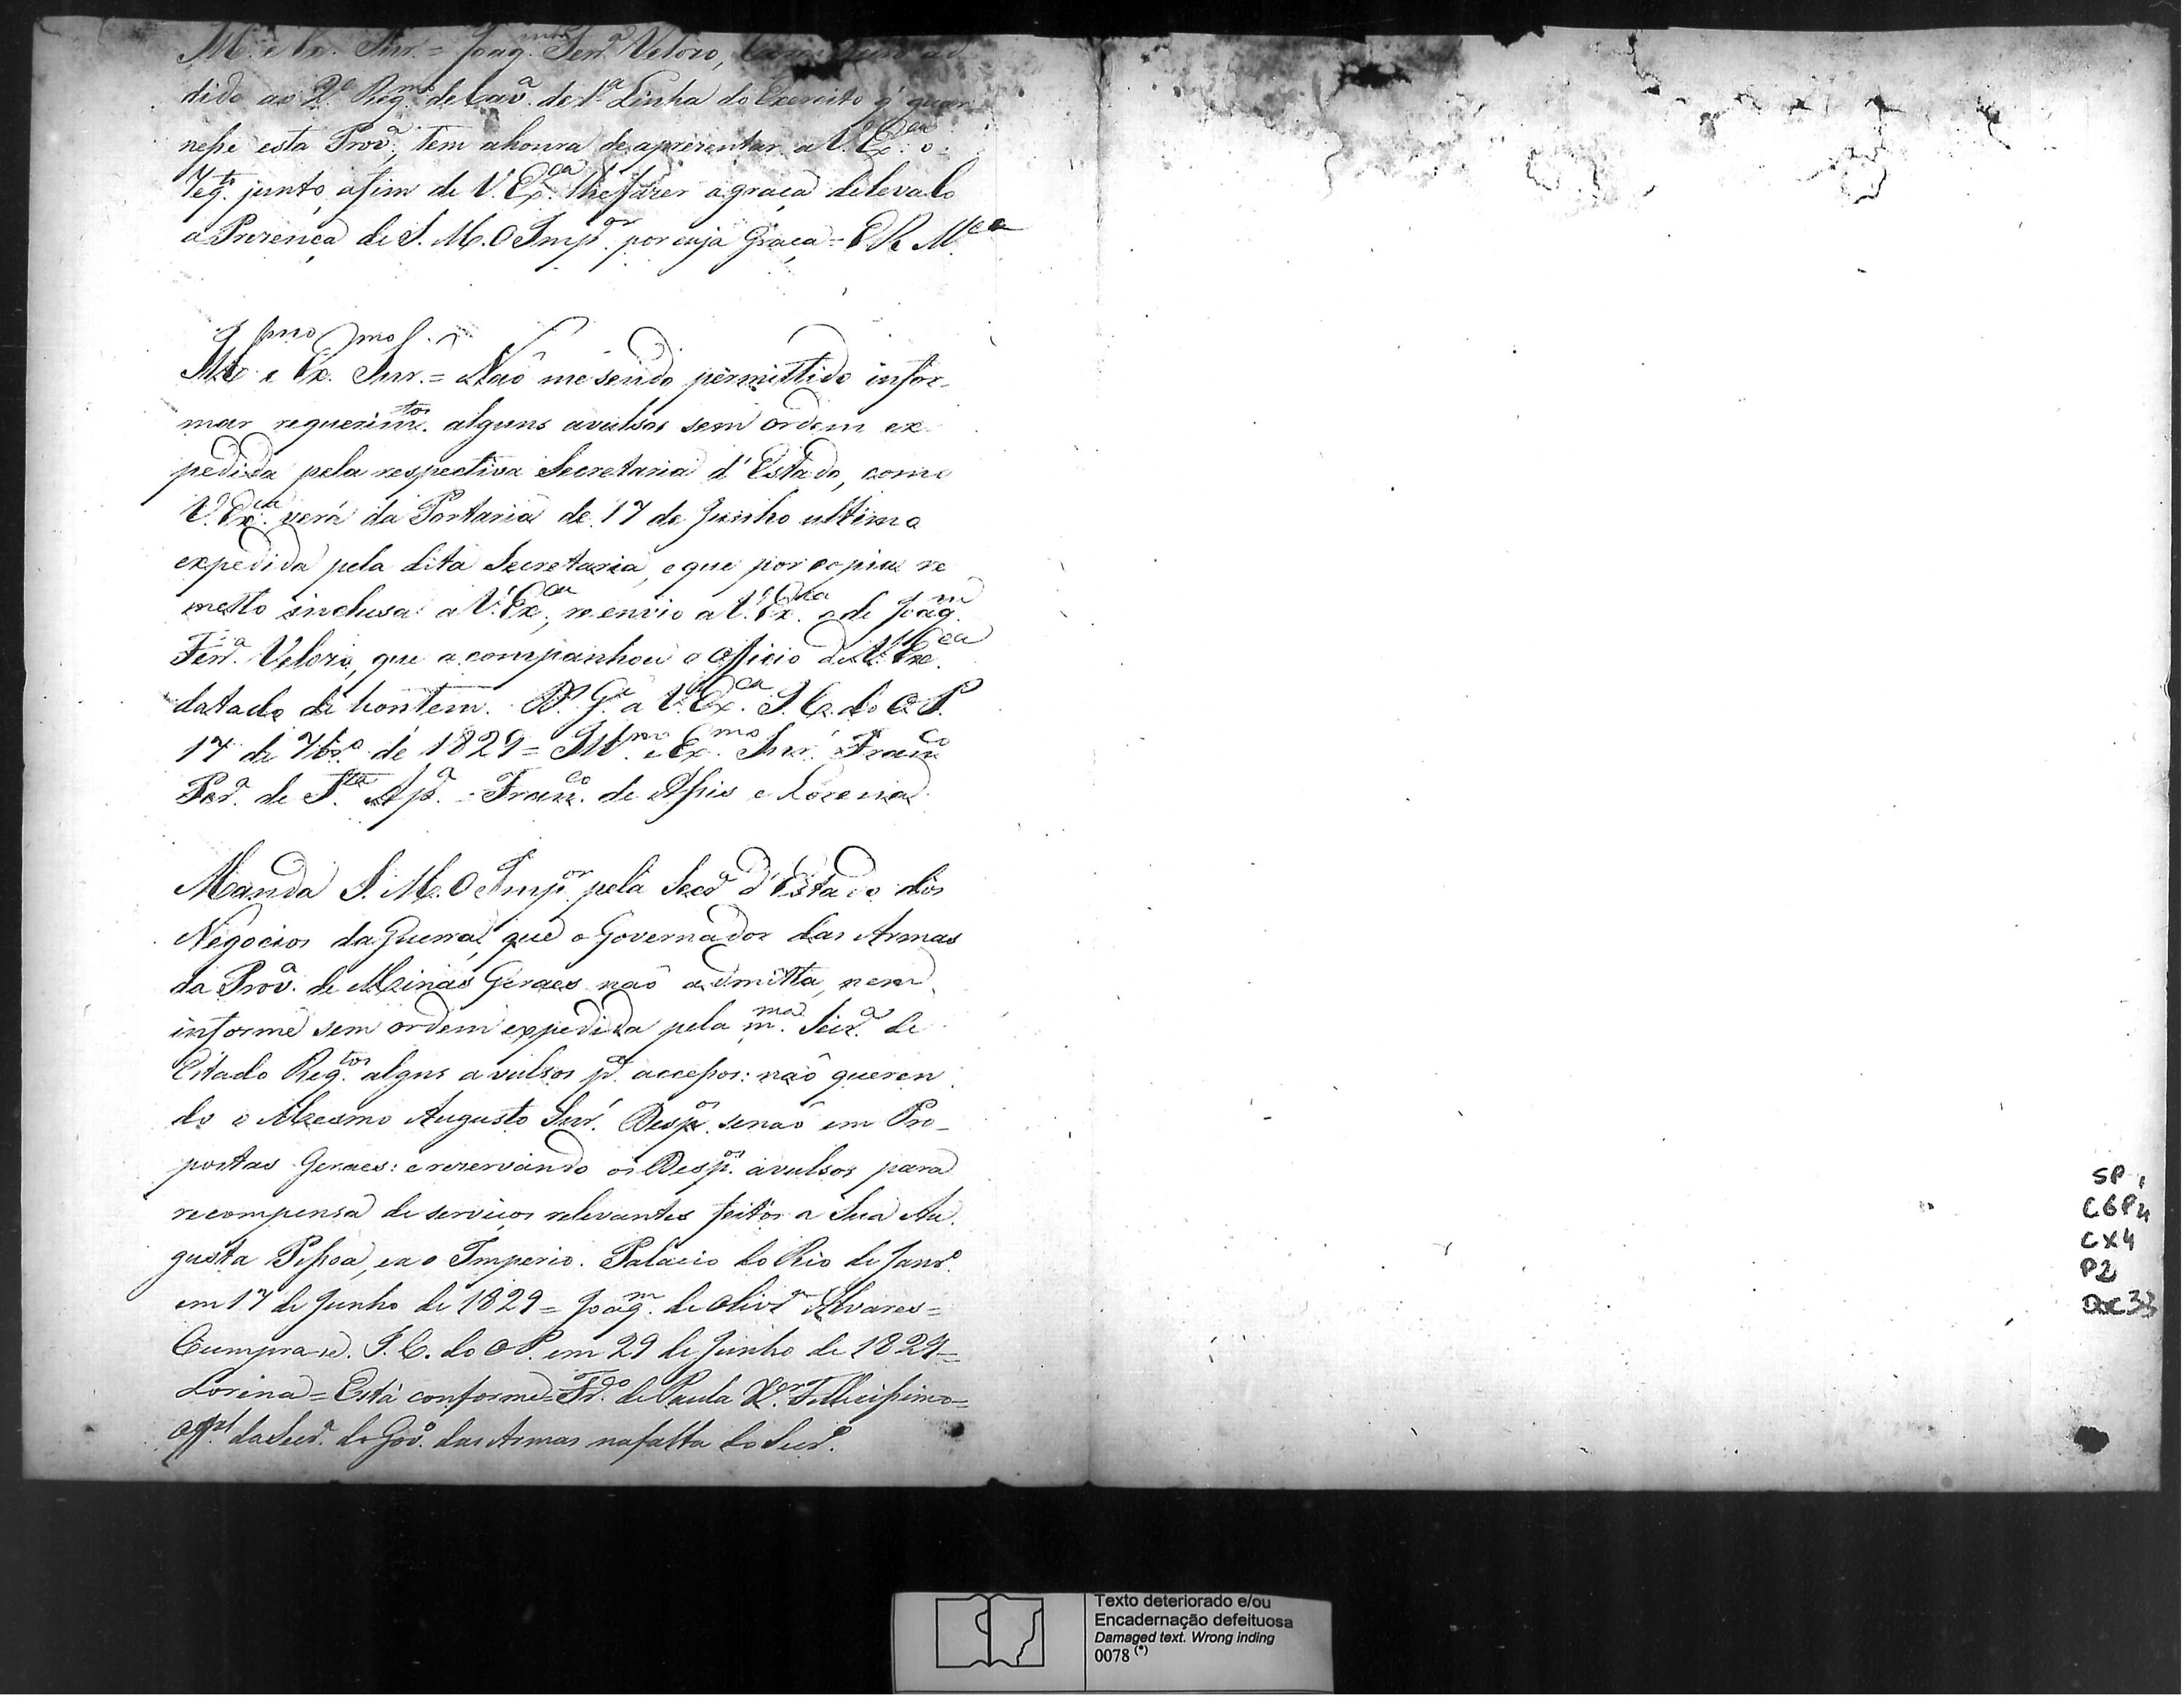 Ill. e Ex. Snr. = Joaq.m Ferr.a Velozo,
dido ao 2.o Reg.mto de Cav.a de 1.a Linha do Exercito q' guar
nesse esta Prov.a, tem a honra de aprezentar a V. Ex.ca o
Req.to junto, afim de V. Ex.ca lhe fazer a graça de levalo
a Prezença de S. M. O Imp.or por cuja Graça = E R M.cea
Ill.mo e Ex.mo Snr. = Naõ me sendo permittido infor-
mar requerim.tos alguns avulsos sem ordem ex
pedida pela respectiva Secretaria d'Estado, como
V. Ex.ca verá da Portaria de 17 de Junho ultimo
expedida pela dita Secretaria, e que por copia re
metto inclusa a V. Ex.ca, reenvio a V. Ex.ca o de Joaq.m
Ferr.a Velozo, que acompanhou o Officio de V. Ex.ca
datado de hontem. D.s G.e a V. Ex.ca I. C. do O. P.
17 de 7br.o de 1829 = Ill.mo e Ex.mo Snr. Fran.co
Per.a de S.ta Ap.a = Fran.co de Assis e Lorena
Manda S. M. O Imp.or pela Secr.a d'Estado dos
Negocios da Guerra, que o Governador das Armas
da Prov.a de Minas Geraes naõ admitta, nem
informe sem ordem expedida pela m.ma Secr.a de
Estado Req.tos alguns avulsos p.a accessos: naõ queren
do o Mesmo Augusto Snr. Desp.os senaõ em Pro-
postas Geraes: e rezervando os Desp.os avulsos para
recompensa de serviços relevantes feitos a Sua Au
gusta Pessoa, e ao Imperio. Palacio do Rio de Janr.o
em 17 de Junho de 1829 = Joaq.m de Olivr.a Alvares =
Cumpra-se. I. C. do O. P. em 29 de Junho de 1829 =
Lorena = Está conforme = de Paula X.er
Off.al da Secr.a do Gov.o das Armas na falta do Secr.o
SP 1
C6P4
CX4
P2
Doc 33
Texto deteriorado e/ou
Encadernação defeituosa
Damaged text. Wrong inding
0078 (*)